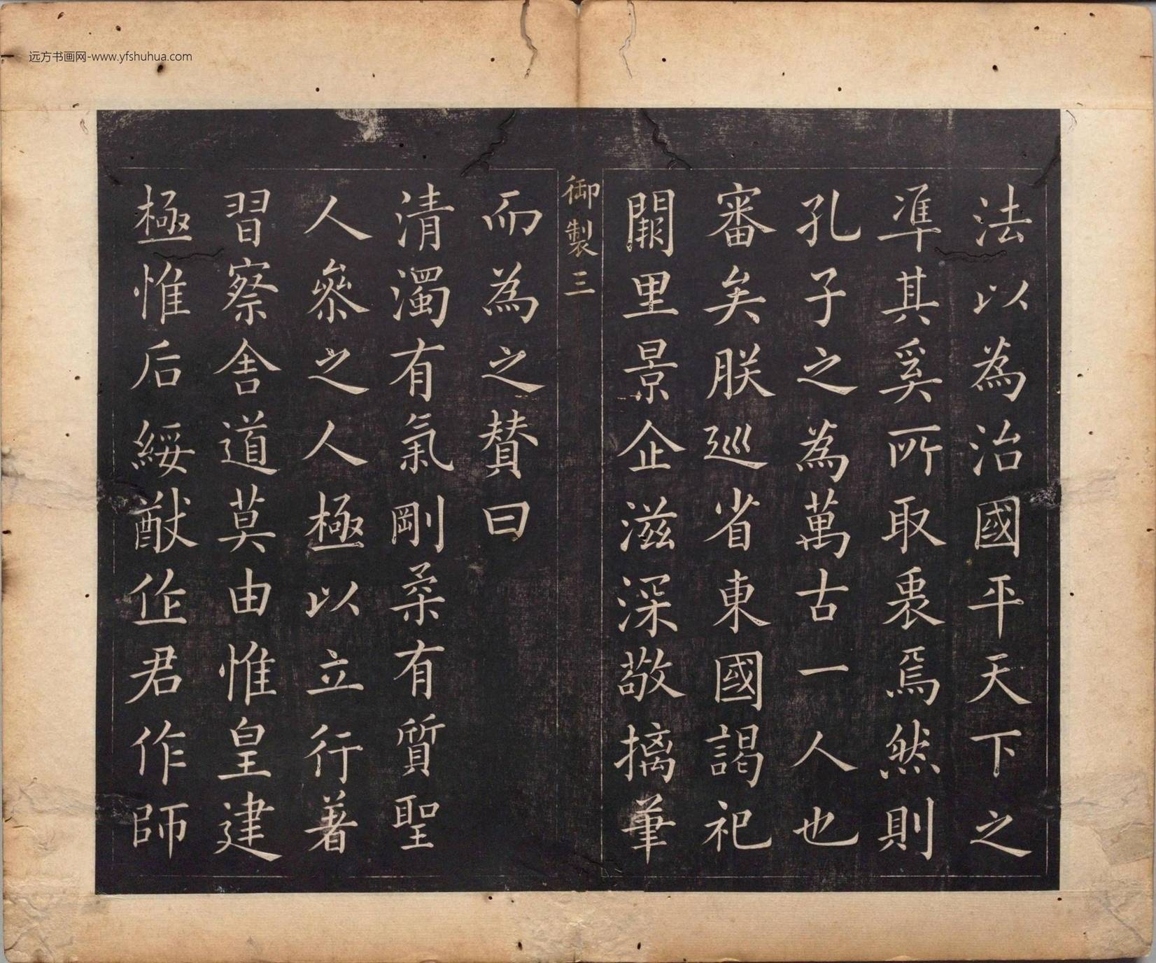 远方书画网-www.yfshuhua.com
法以為治國平天下之
準其奚所取衷焉然則
孔子之為萬古一人也
審矣朕巡省東國謁祀
闕里景企滋深敬摛筆
御製三
而為之贊曰
清濁有氣剛柔有質聖
人叅之人極以立行著
習察舍道莫由惟皇建
極惟后綏猷作君作師